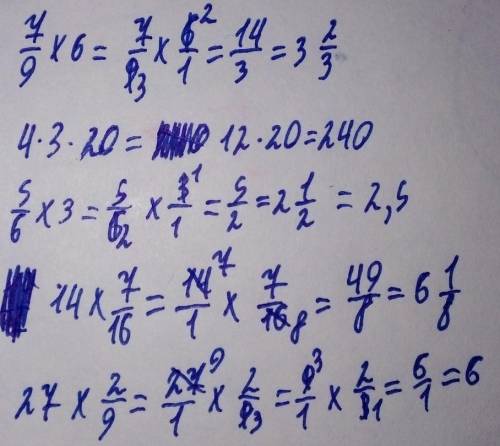 7/9 × 6 = 7/9 3 × 6 2/1 = 14/3 = 3 2/3
4·3·20 = 12·20=240
5/6 × 3 = 5/6 2 × 3 1/1 = 5/2 = 2 1/2 = 2,5
14 × 7/16 = 14 7/1 × 7/16 8 = 49/8 = 6 1/8
27 × 2/9 = 27 9/1 × 2/9 3 = 9 3/1 × 2/3 1 = 6/1 = 6